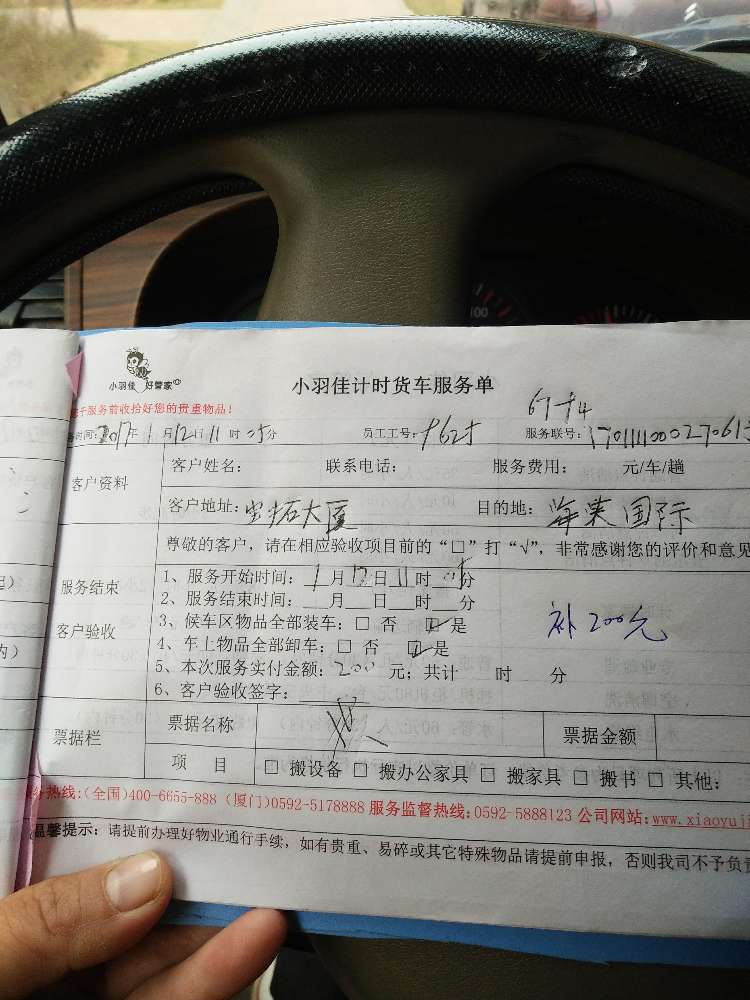 小羽佳 好管家
小羽佳计时货车服务单
服务前收拾好您的贵重物品!
时间: 2017年1月12日11时05分 员工工号: 服务联号:
客户资料
客户姓名: 联系电话: 服务费用: 元/车/趟
客户地址: 大厦 目的地: 国际
尊敬的客户,请在相应验收项目前的“□”打“√”,非常感谢您的评价和意见
服务结束
客户验收
1、服务开始时间: 1月12日11时05分
2、服务结束时间: 月 日 时 分
3、候车区物品全部装车: □ 否 ☑ 是
4、车上物品全部卸车: □ 否 ☑ 是
补200元
5、本次服务实付金额: 200 元; 共计 时 分
6、客户验收签字:
票据栏
票据名称 票据金额
项 目 □ 搬设备 □ 搬办公家具 □ 搬家具 □ 搬书 □ 其他:
热线:(全国)400-6655-888 (厦门)0592-5178888 服务监督热线:0592-5888123 公司网站:www.xiaoyuji
温馨提示: 请提前办理好物业通行手续,如有贵重、易碎或其它特殊物品请提前申报,否则我司不予负责
100